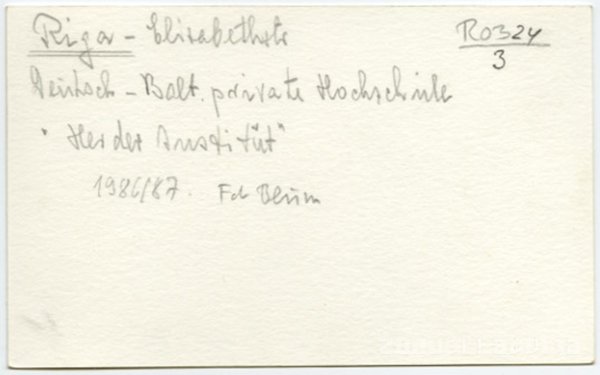 Riga - Elisabethstr
R0324
3
Deutsch - Balt. private Hochschule
"Herder Institut"
1986/87. Fd Blum